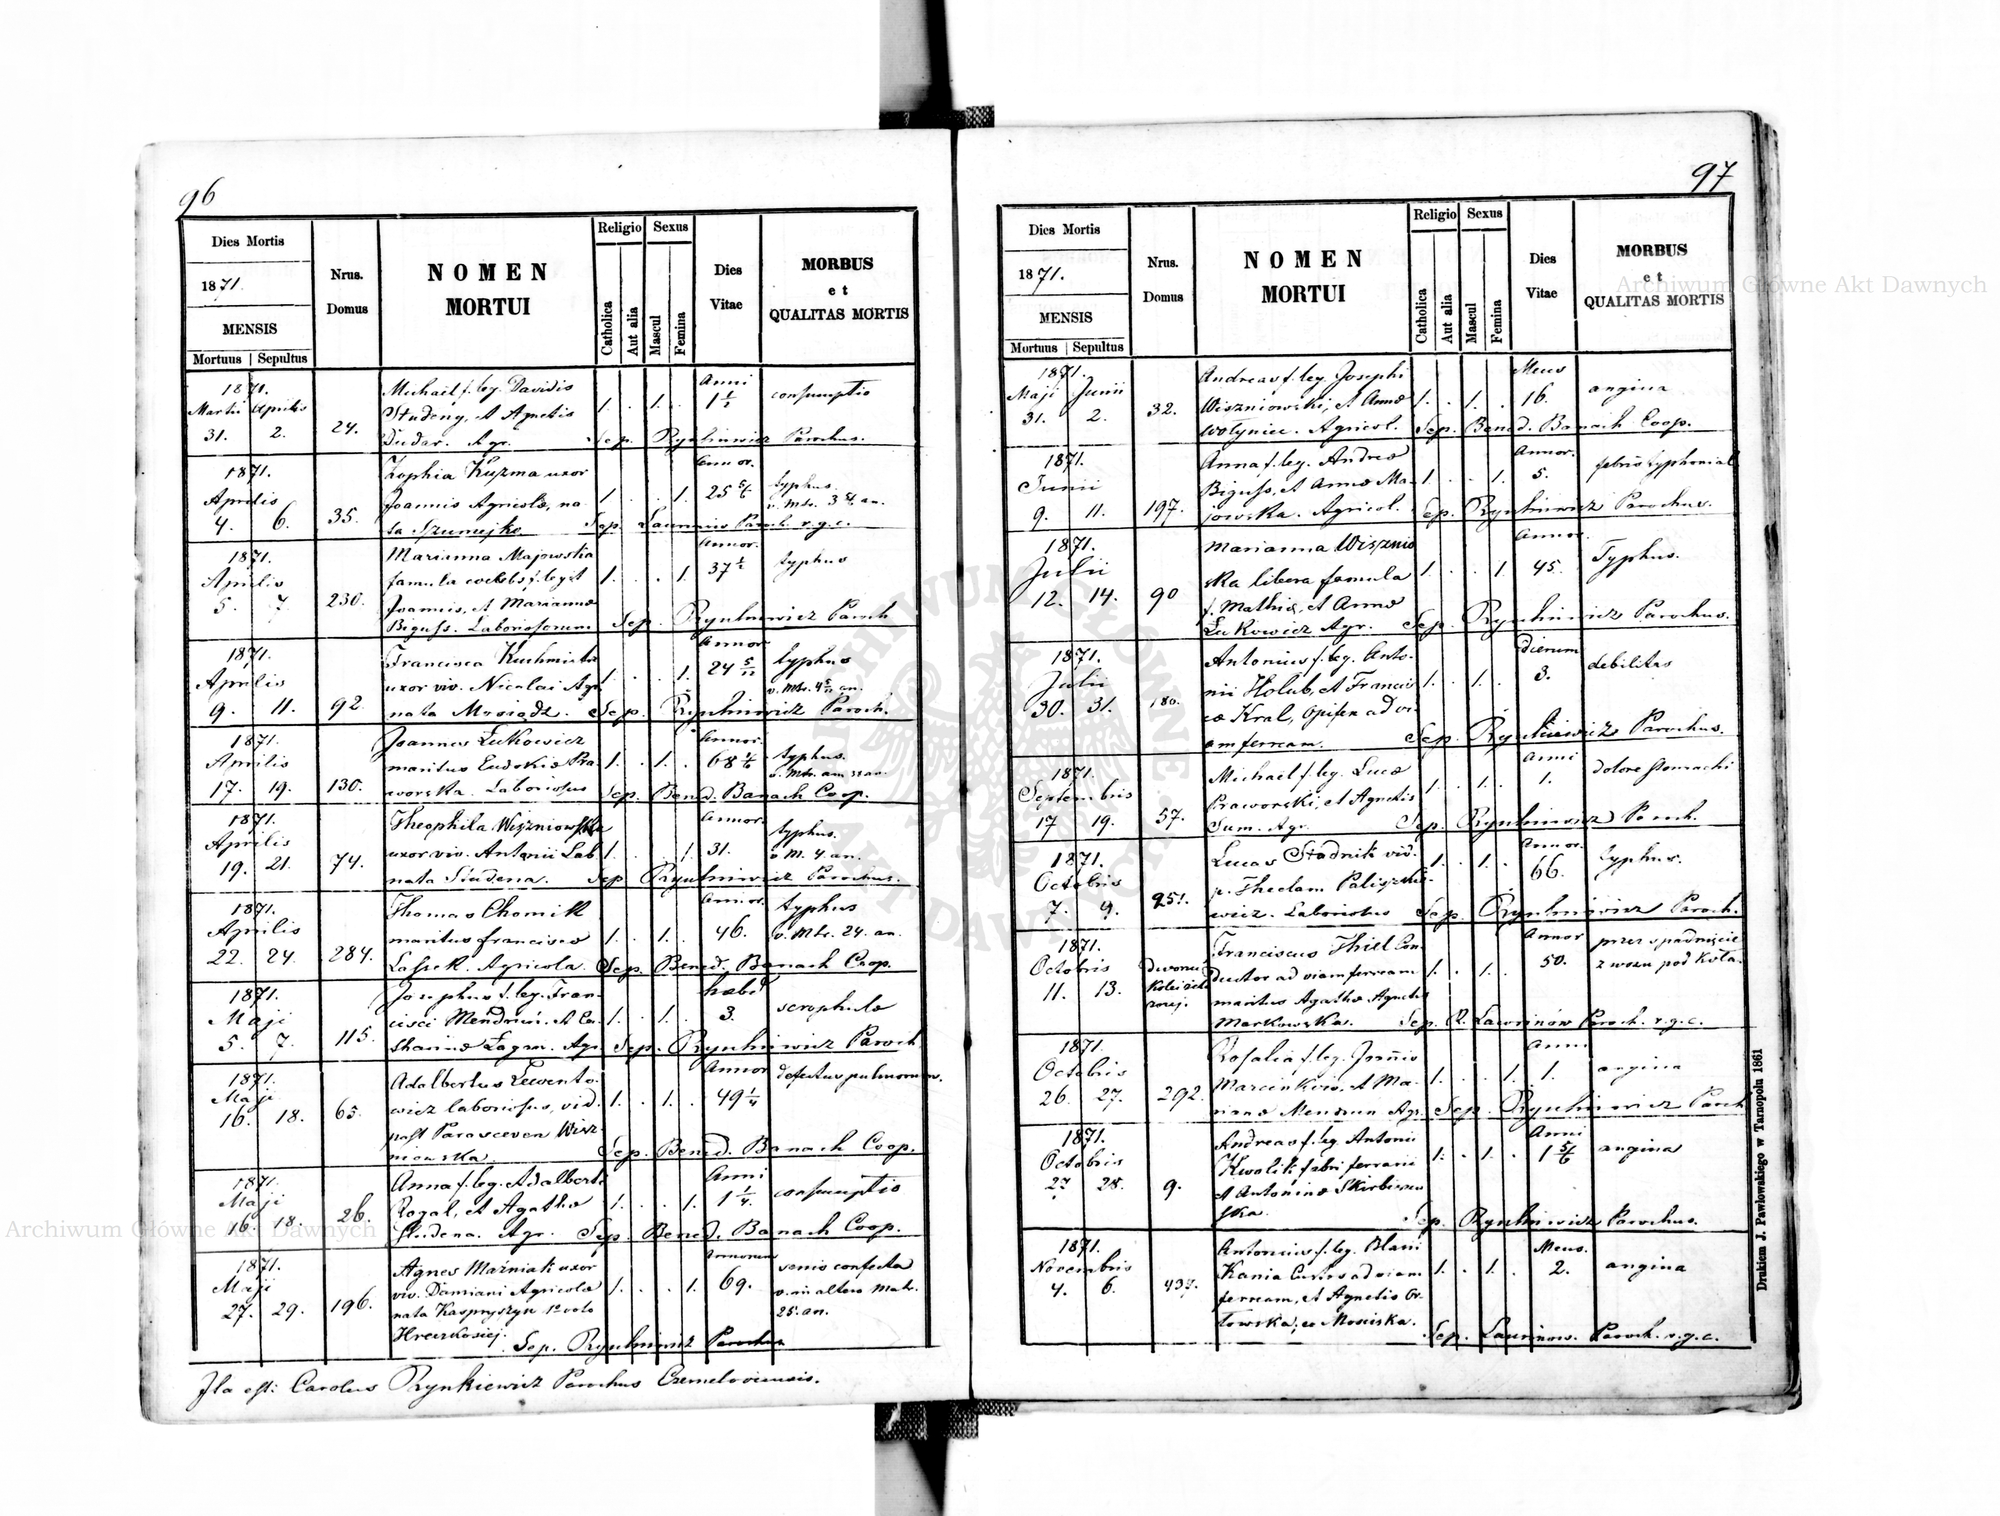 96
Dies Mortis
1871.
MENSIS
Mortuus | Sepultus
Nrus.
Domus
NOMEN
MORTUI
Religio
Catholica
Aut alia
Sexus
Mascul
Femina
Dies
Vitae
MORBUS
et
QUALITAS MORTIS
1871.
Martii Aprilis
31. 2.
24.
Michael f. leg. Davidis
Studeny, et Agnetis
Dudar. Agr.
1. . 1. .
Anni
1 1/2
consumptio
Sep. Rynkiewicz Parochus.
1871.
Aprilis
4. 6.
35.
Zophia Kuzma uxor
Joannis Agricolæ, na-
ta Szumejko
1. . . 1.
Annor.
25 5/6
typhus.
Sep. Laurinów Paroch. r.g.c.
1871.
Aprilis
5. 7.
230.
Marianna Majewska
famula f. leg.
Joannis, et Mariannæ
Biguss. Laboriosorum
1. . . 1.
Annor.
37 1/2
typhus
Sep. Rynkiewicz Paroch
1871.
Aprilis
9. 11.
92.
Francisca
uxor viv. Nicolai Agr.
nata
1. . . 1.
Annor.
24 5/12
typhus
Sep. Rynkiewicz Paroch.
1871.
Aprilis
17. 19.
130.
Joannes Łukowicz
maritus Eudokiæ Pra-
worska. Laboriosus
1. . 1. .
Annor.
68 1/6
typhus.
Sep. Bened. Banach Coop.
1871.
Aprilis
19. 21.
74.
Theophila Wiszniowska
uxor viv. Antonii Lab.
nata Studena.
1. . . 1.
Annor.
31.
typhus.
v. M. 4. an.
Sep. Rynkiewicz Parochus.
1871.
Aprilis
22. 24.
284.
Thomas Chomik
maritus Franciscæ
Lassek. Agricola.
1. . 1. .
Annor.
46.
typhus
v. Mtr. 24. an.
Sep. Bened. Banach Coop.
1871.
Maji
5. 7.
115.
Josephus f. leg. Fran-
cisci Mendrun. et Ca-
tharinæ Agr.
1. . 1. .
hebd
3.
scrophulæ
Sep. Rynkiewicz Paroch
1871.
Maji
16. 18.
65.
Adalbertus Lewento-
wicz laboriosus, vid.
post Parasceven Wisz-
niewska.
1. . 1. .
Annor
49 1/4
defectus pulmonum.
Sep. Bened. Banach Coop.
1871.
Maji
16. 18.
26.
Anna f. leg. Adalberti
Rogal, et Agathæ
Studena. Agr.
1. . . 1.
Anni
1 1/4.
consumptio
Sep. Bened. Banach Coop.
1871.
Maji
27. 29.
196.
Agnes Maźniak uxor
viv. Damiani Agricolæ
nata Kaspryszyn 1º voto
Hreczkosiej.
1. . . 1.
Annorum
69.
senio confecta
v. in altero Matr.
25. an.
Sep. Rynkiewicz Parochus
Ita est: Carolus Rynkiewicz Parochus Czernelovicensis.
97
Dies Mortis
1871.
MENSIS
Mortuus | Sepultus
Nrus.
Domus
NOMEN
MORTUI
Religio
Catholica
Aut alia
Sexus
Mascul
Femina
Dies
Vitae
MORBUS
et
QUALITAS MORTIS
1871.
Maji Junii
31. 2.
32.
Andreas f. leg. Josephi
Wiszniowski, et Annæ
Wołyniec. Agricol.
1. . 1. .
Mens
16.
angina
Sep. Bened. Banach Coop.
1871.
Junii
9. 11.
197.
Anna f. leg. Andreæ
Biguss, et Annæ Ma-
jowska. Agricol.
1. . . 1.
Annor.
5.
Sep. Rynkiewicz Parochus.
1871.
Julii
12. 14.
90
Marianna Wisznio
ska libera famula
f. Mathiæ, et Annæ
Łukowicz Agr.
1. . . 1.
Annor.
45.
Typhus.
Sep. Rynkiewicz Parochus.
1871.
Julii
30. 31.
180.
Antonius f. leg. Anto-
nii Holub, et Francis
cæ Kral, Opifex ad vi-
am ferream.
1. . 1. .
dierum
3.
debilitas
Sep. Rynkiewicz Parochus.
1871.
Septembris
17 19.
57.
Michael f. leg. Lucæ
Praworski, et Agnetis
Sum. Agr.
1. . 1. .
anni
1.
dolore stomachi
Sep. Rynkiewicz Paroch.
1871.
Octobris
7. 9.
251.
Lucas Stadnik vid.
p. Theclam Paliszkie-
wicz. Laboriosus
1. . 1. .
Annor.
66.
typhus.
Sep. Rynkiewicz Paroch.
1871.
Octobris
11. 13.
Franciscus Thiel Con-
ductor ad viam ferream
maritus Agathæ Agnetis
Markowska.
1. . 1. .
Annor
50.
przez spadnięcie
z wozu pod koła.
Sep. R. Lawrinów Paroch. r.g.c.
1871.
Octobris
26. 27.
292.
Rosalia f. leg. Joannis
Marcinkow, et Ma-
rianæ Mendrun Agr.
1. . . 1.
Anni
1.
angina
Sep. Rynkiewicz Paroch
1871.
Octobris
27 28.
9.
Andreas f. leg. Antonii
Kwolik fabri ferrarii
et Antoninæ
ska.
1. . 1. .
Anni
1 5/6
angina
Sep. Rynkiewicz Parochus.
1871.
Novembris
4. 6.
437.
Antonius f. leg. Blasii
Kania Custos ad viam
ferream, et Agnetis Or-
łowska, ex Mosciska.
1. . 1. .
Mens.
2.
angina
Sep. Laurinow. Paroch. r.g.c.
Drukiem J. Pawłowskiego w Tarnopolu 1861
Archiwum Główne Akt Dawnych
Archiwum Główne Akt Dawnych
ARCHIWUM GŁÓWNE AKT DAWNYCH